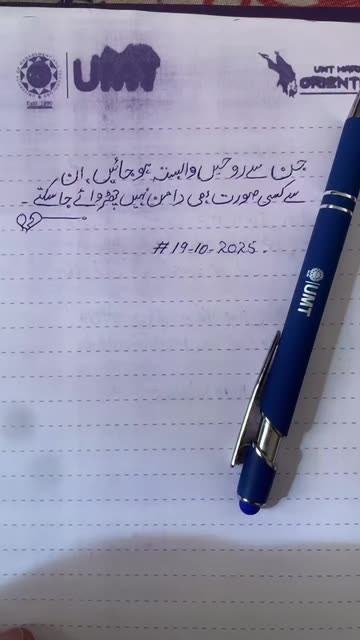 UMT
UMT MARK
ORIENT
جن سے روحیں وابستہ ہو جائیں، ان
سے کسی صورت بھی دامن نہیں چھڑوائے جا سکتے۔
#19-10-2025.
UMT